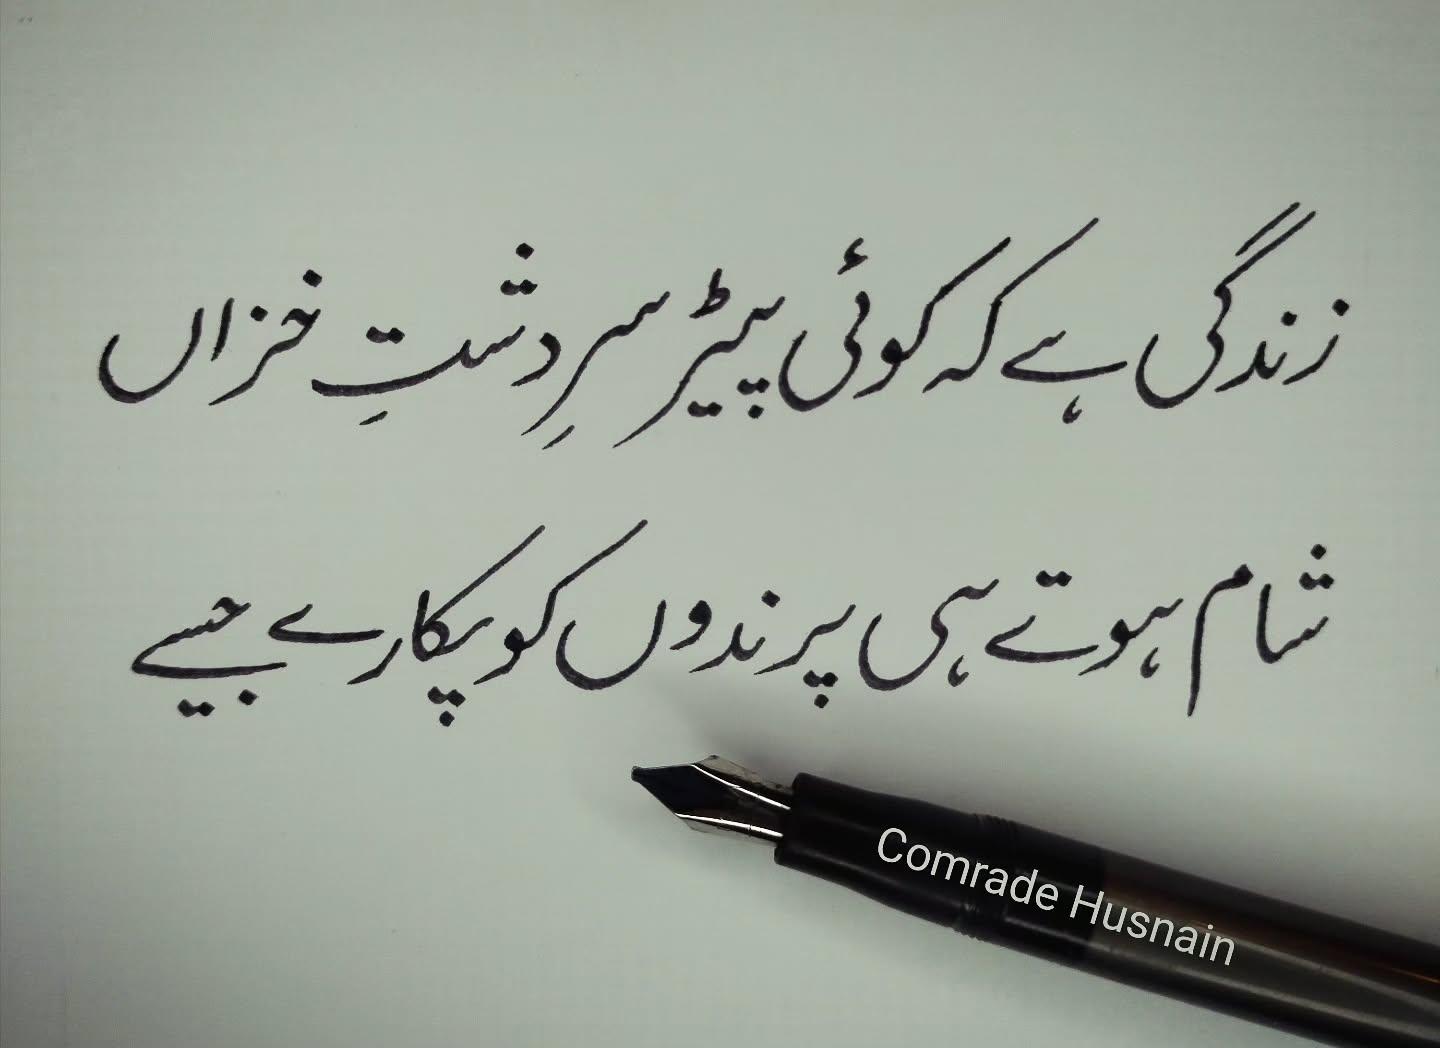 زندگی ہے کہ کوئی پیڑ سرِ دشتِ خزاں
شام ہوتے ہی پرندوں کو پکارے جیسے
Comrade Husnain